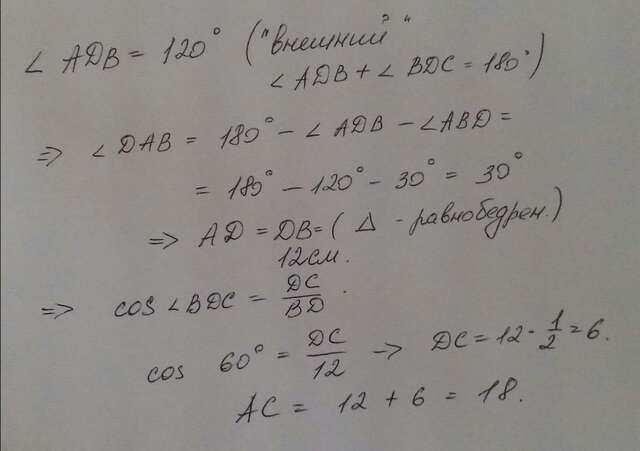 ∠ ADB = 120° ("внешний"
∠ ADB + ∠ BDC = 180°)
=> ∠ DAB = 180° - ∠ ADB - ∠ABD =
= 180° - 120° - 30° = 30°
=> AD = DB = ( Δ - равнобедрен.)
12см.
=> cos ∠BDC = DC/BD.
cos 60° = DC/12 -> DC = 12 · 1/2 = 6.
AC = 12 + 6 = 18.